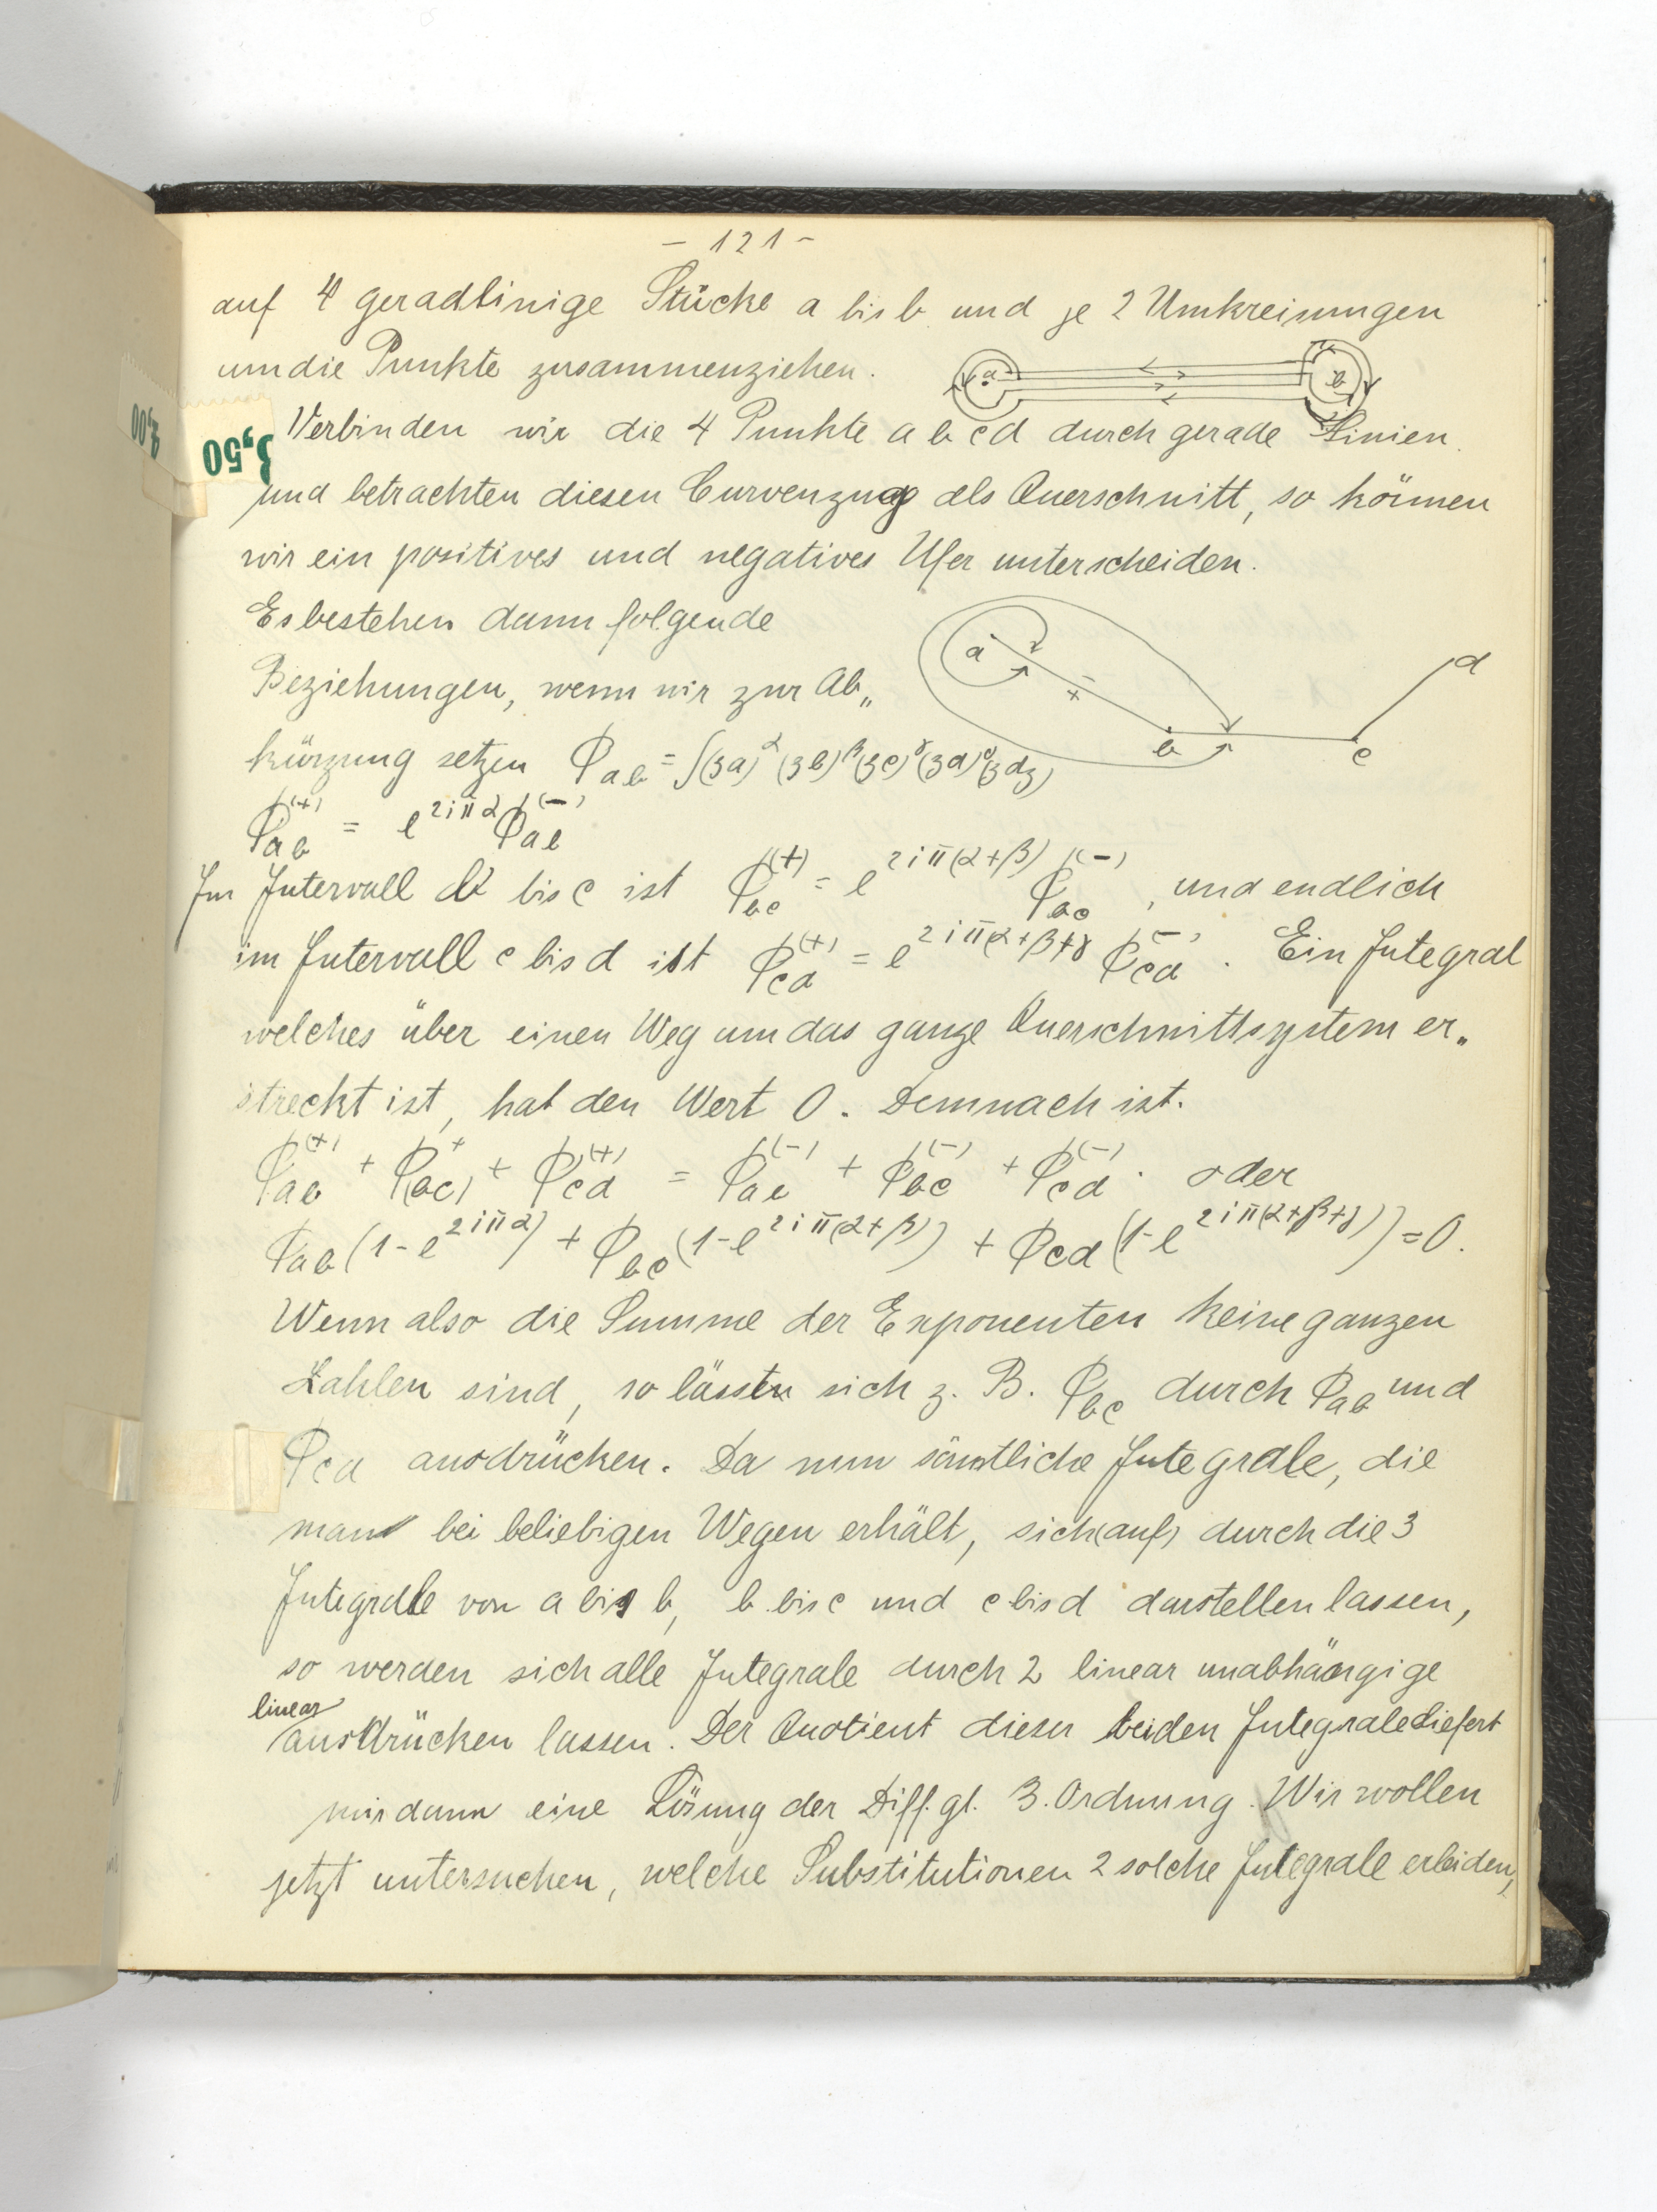 – 121 –
auf 4 geradlinige Stücke a bis b und je 2 Umkreisungen
um die Punkte zusammenziehen.
a b
Verbinden wir die 4 Punkte a b c d durch gerade Linien
3,50
und betrachten diesen Curvenzug als Querschnitt, so können
wir ein positives und negatives Ufer unterscheiden.
Es bestehen dann folgende
Beziehungen, wenn wir zur Ab„
a + – b c d
kürzung setzen Φ_ab = ∫(za)^α (zb)^β (zc)^γ (zd)^δ (z dz)
Φ_ab^(+) = e^{2iπα} Φ_ab^(–)
Im Intervall b bis c ist Φ_bc^(+) = e^{2iπ(α+β)} Φ_bc^(–), und endlich
im Intervall c bis d ist Φ_cd^(+) = e^{2iπ(α+β+γ} Φ_cd^(–). Ein Integral
welches über einen Weg um das ganze Querschnittsystem er„
streckt ist, hat den Wert 0. Demnach ist.
Φ_ab^(+) + Φ_(bc)^+ + Φ_cd^(+) = Φ_ab^(–) + Φ_bc^(–) + Φ_cd^(–). oder
Φ_ab (1-e^{2iπα}) + Φ_bc (1-e^{2iπ(α+β)}) + Φ_cd (1-e^{2iπ(α+β+γ)}) = 0.
Wenn also die Summe der Exponenten keine ganzen
Zahlen sind, so lässt sich z. B. Φ_bc durch Φ_ab und
Φ_cd ausdrücken. Da nun sämtliche Integrale, die
man bei beliebigen Wegen erhält, sich (auf) durch die 3
Integrale von a bis b, b bis c und c bis d darstellen lassen,
so werden sich alle Integrale durch 2 linear unabhängige
linear
ausdrücken lassen. Der Quotient dieser beiden Integrale liefert
mir dann eine Lösung der Diff. gl. 3. Ordnung. Wir wollen
jetzt untersuchen, welche Substitutionen 2 solche Integrale erleiden,